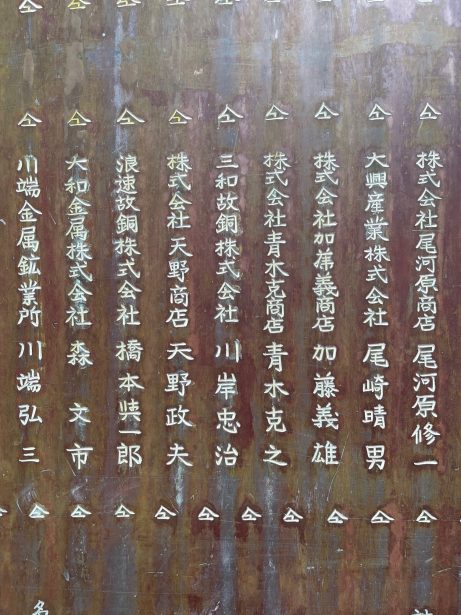 株式会社尾河原商店 尾河原修一
大興産業株式会社 尾崎晴男
株式会社加藤義商店 加藤義雄
株式会社青木克商店 青木克之
三和故銅株式会社 川岸忠治
株式会社天野商店 天野政夫
浪速故銅株式会社 橋本奘一郎
大和金属株式会社 森文市
川端金属鉱業所 川端弘三
名